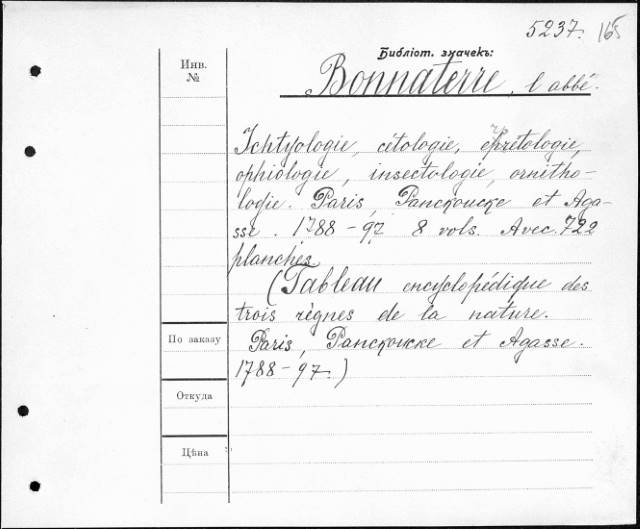 5237. 165
Библіот. значекъ:
Инв.
№
Bonnaterre, l'abbé.
Ichtyologie, cétologie, erpétologie,
ophiologie, insectologie, ornitho-
logie. Paris, Panckoucke et Aga-
sse. 1788-97 8 vols. Avec 722
planches
(Tableau encyclopédique des
trois règnes de la nature.
По заказу
Paris, Panckoucke et Agasse.
1788-97.)
Откуда
Цѣна